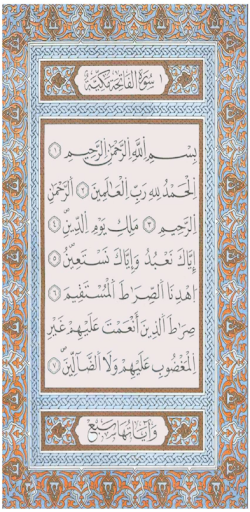 ١ سُورَةُ الْفَاتِحَةِ مَكِّيَّةٌ
بِسْمِ اللَّهِ الرَّحْمَٰنِ الرَّحِيمِ ١
اَلْحَمْدُ لِلَّهِ رَبِّ الْعَالَمِينَ ٢ اَلرَّحْمَٰنِ
الرَّحِيمِ ٣ مَالِكِ يَوْمِ الدِّينِ ٤
إِيَّاكَ نَعْبُدُ وَإِيَّاكَ نَسْتَعِينُ ٥
اِهْدِنَا الصِّرَاطَ الْمُسْتَقِيمَ ٦
صِرَاطَ الَّذِينَ أَنْعَمْتَ عَلَيْهِمْ غَيْرِ
الْمَغْضُوبِ عَلَيْهِمْ وَلَا الضَّالِّينَ ٧
وَآيَاتُهَا سَبْعٌ